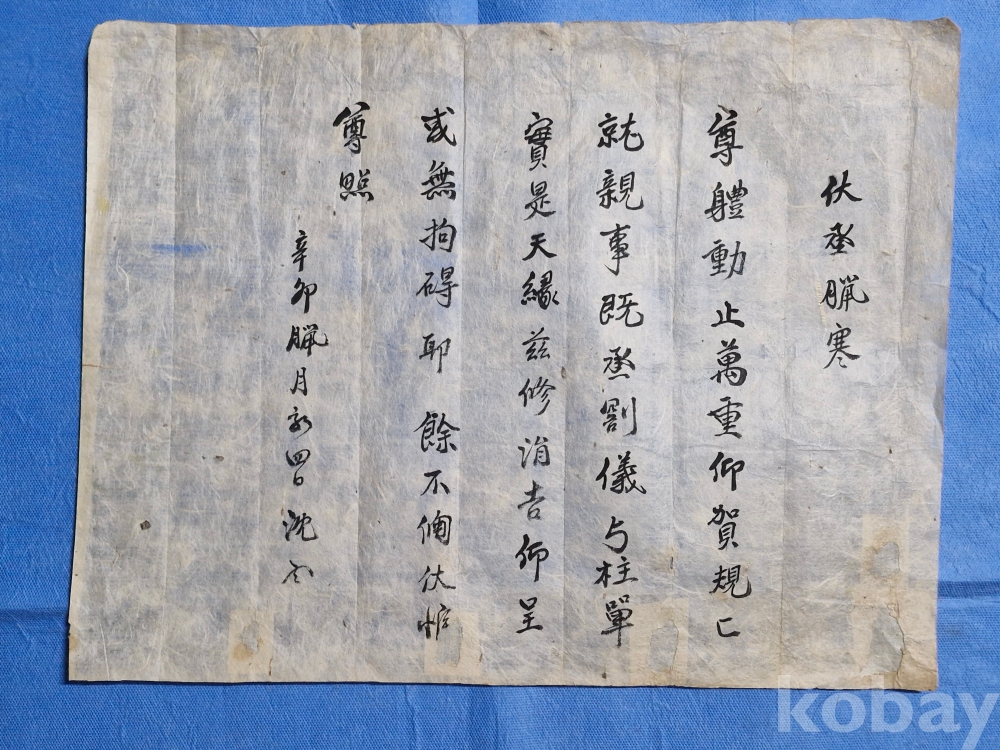 伏承臘寒
尊軆動止萬重仰賀規〻
就親事既承劄儀与柱單
實是天緣玆修涓吉仰呈
或無拘碍耶 餘不備伏惟
尊照
辛卯臘月初四日 沈
kobay